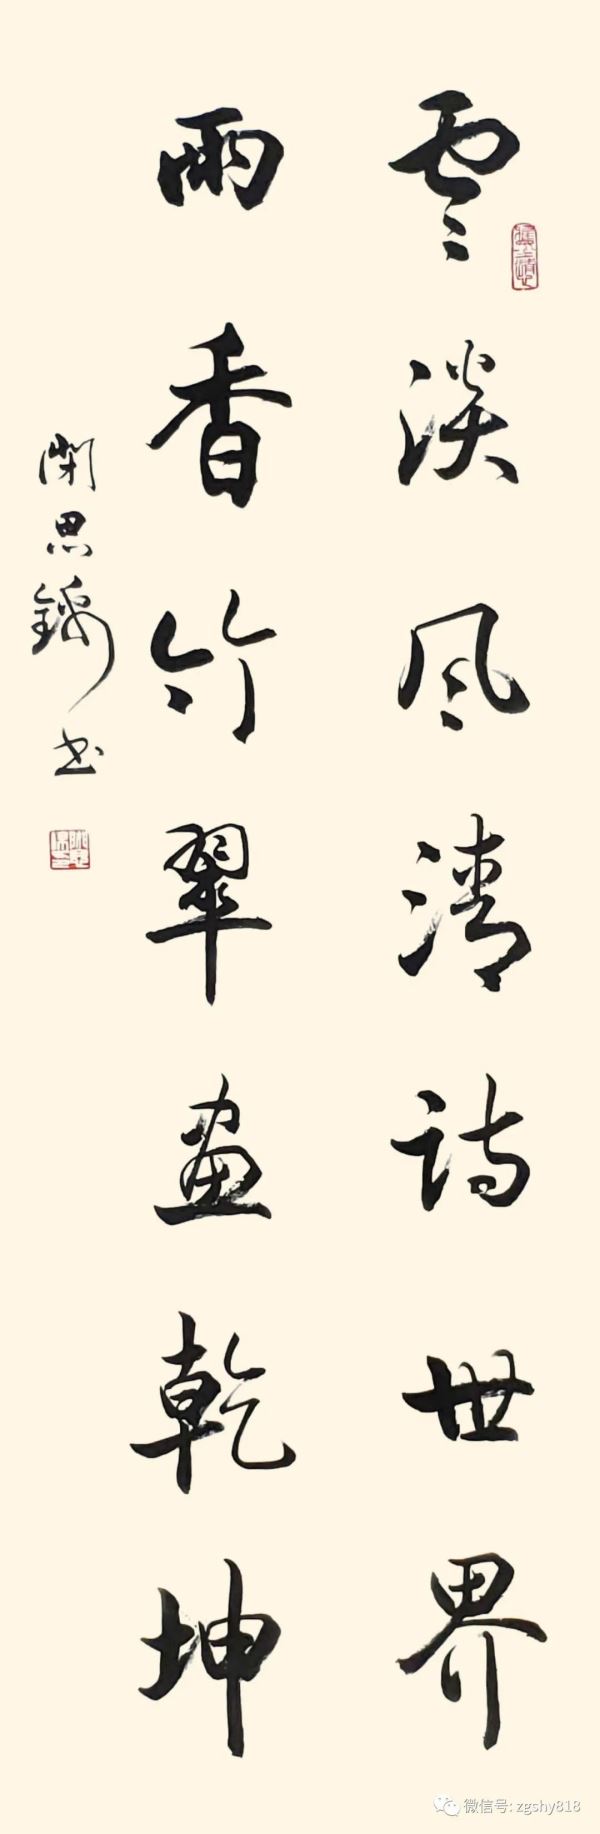 雲淡风清诗世界
雨香竹翠画乾坤
思书
微信号: zgshy818